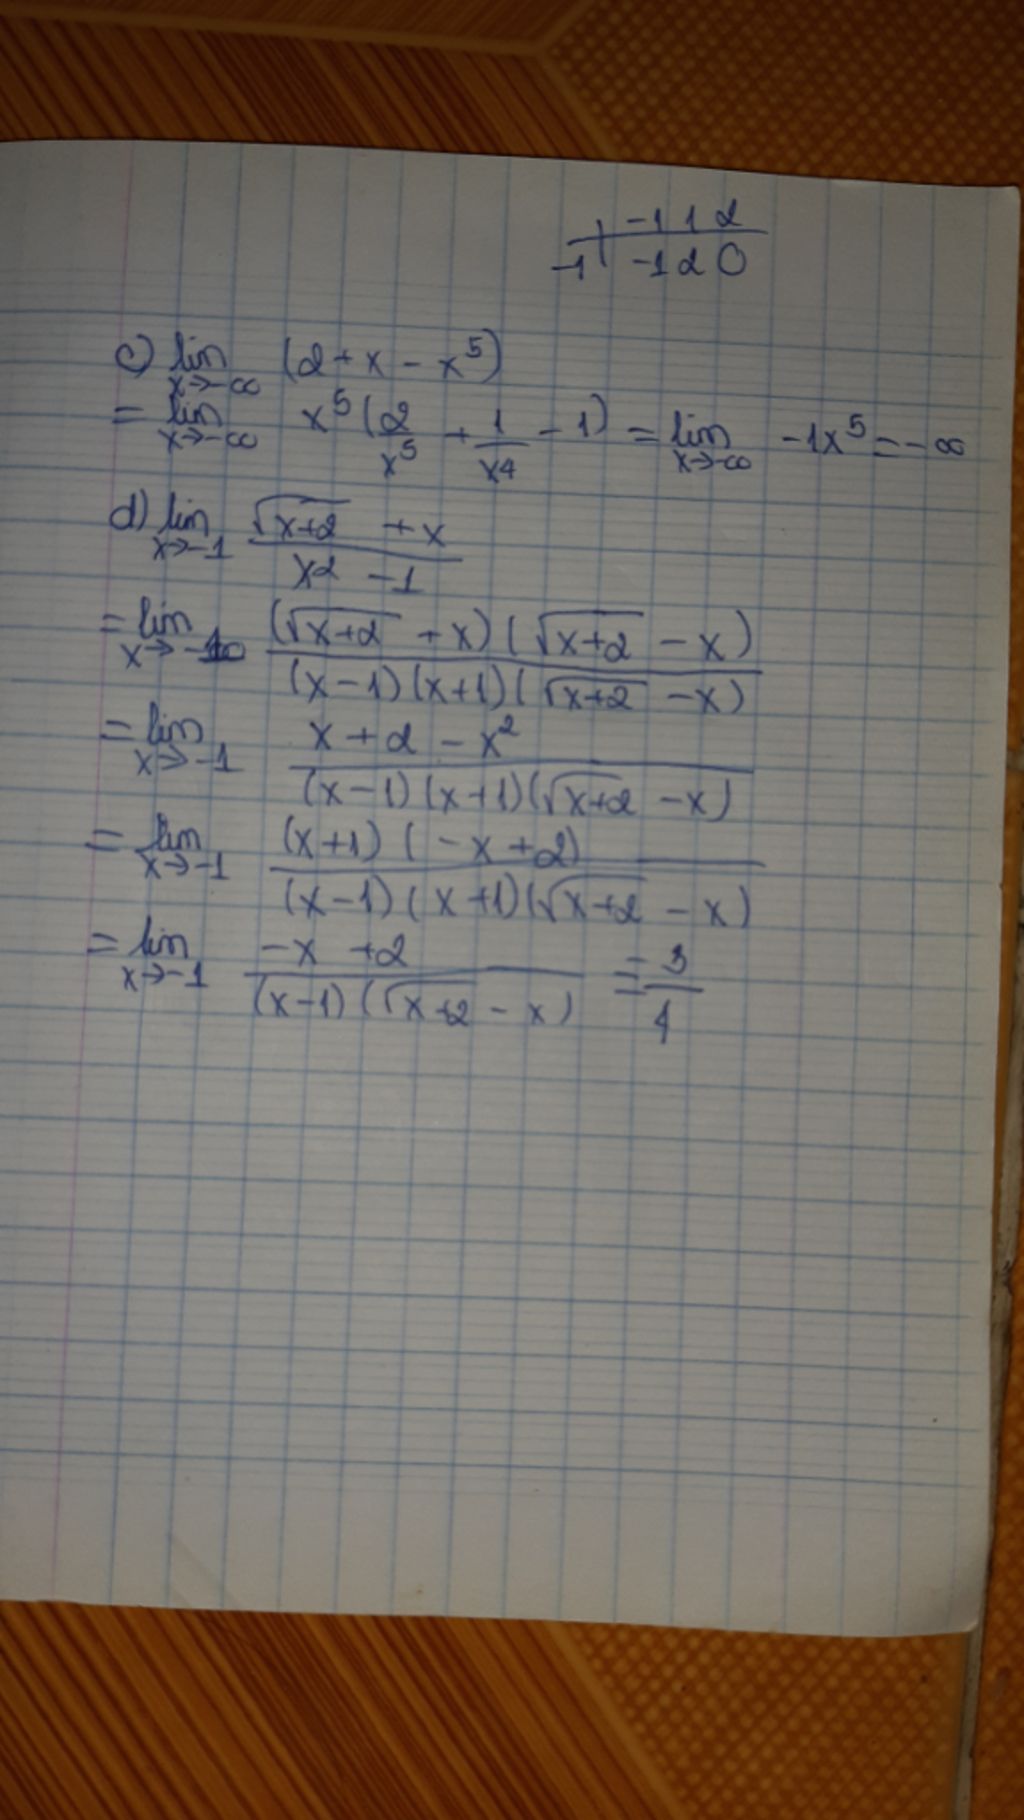 -1 1 2
-1 | -1 2 0
c) lim x→-∞ (2 + x - x⁵)
= lim x→-∞ x⁵ (2/x⁵ + 1/x⁴ - 1) = lim x→-∞ -1x⁵ = -∞
d) lim x→-1 (√(x+2) + x)/(x2 - 1)
= lim x→-1 (√(x+2) + x)(√(x+2) - x)/((x-1)(x+1)(√(x+2) - x))
= lim x→-1 (x + 2 - x²)/((x-1)(x+1)(√(x+2) - x))
= lim x→-1 (x+1)(-x+2)/((x-1)(x+1)(√(x+2) - x))
= lim x→-1 (-x +2)/((x-1)(√(x+2) - x)) = -3/4